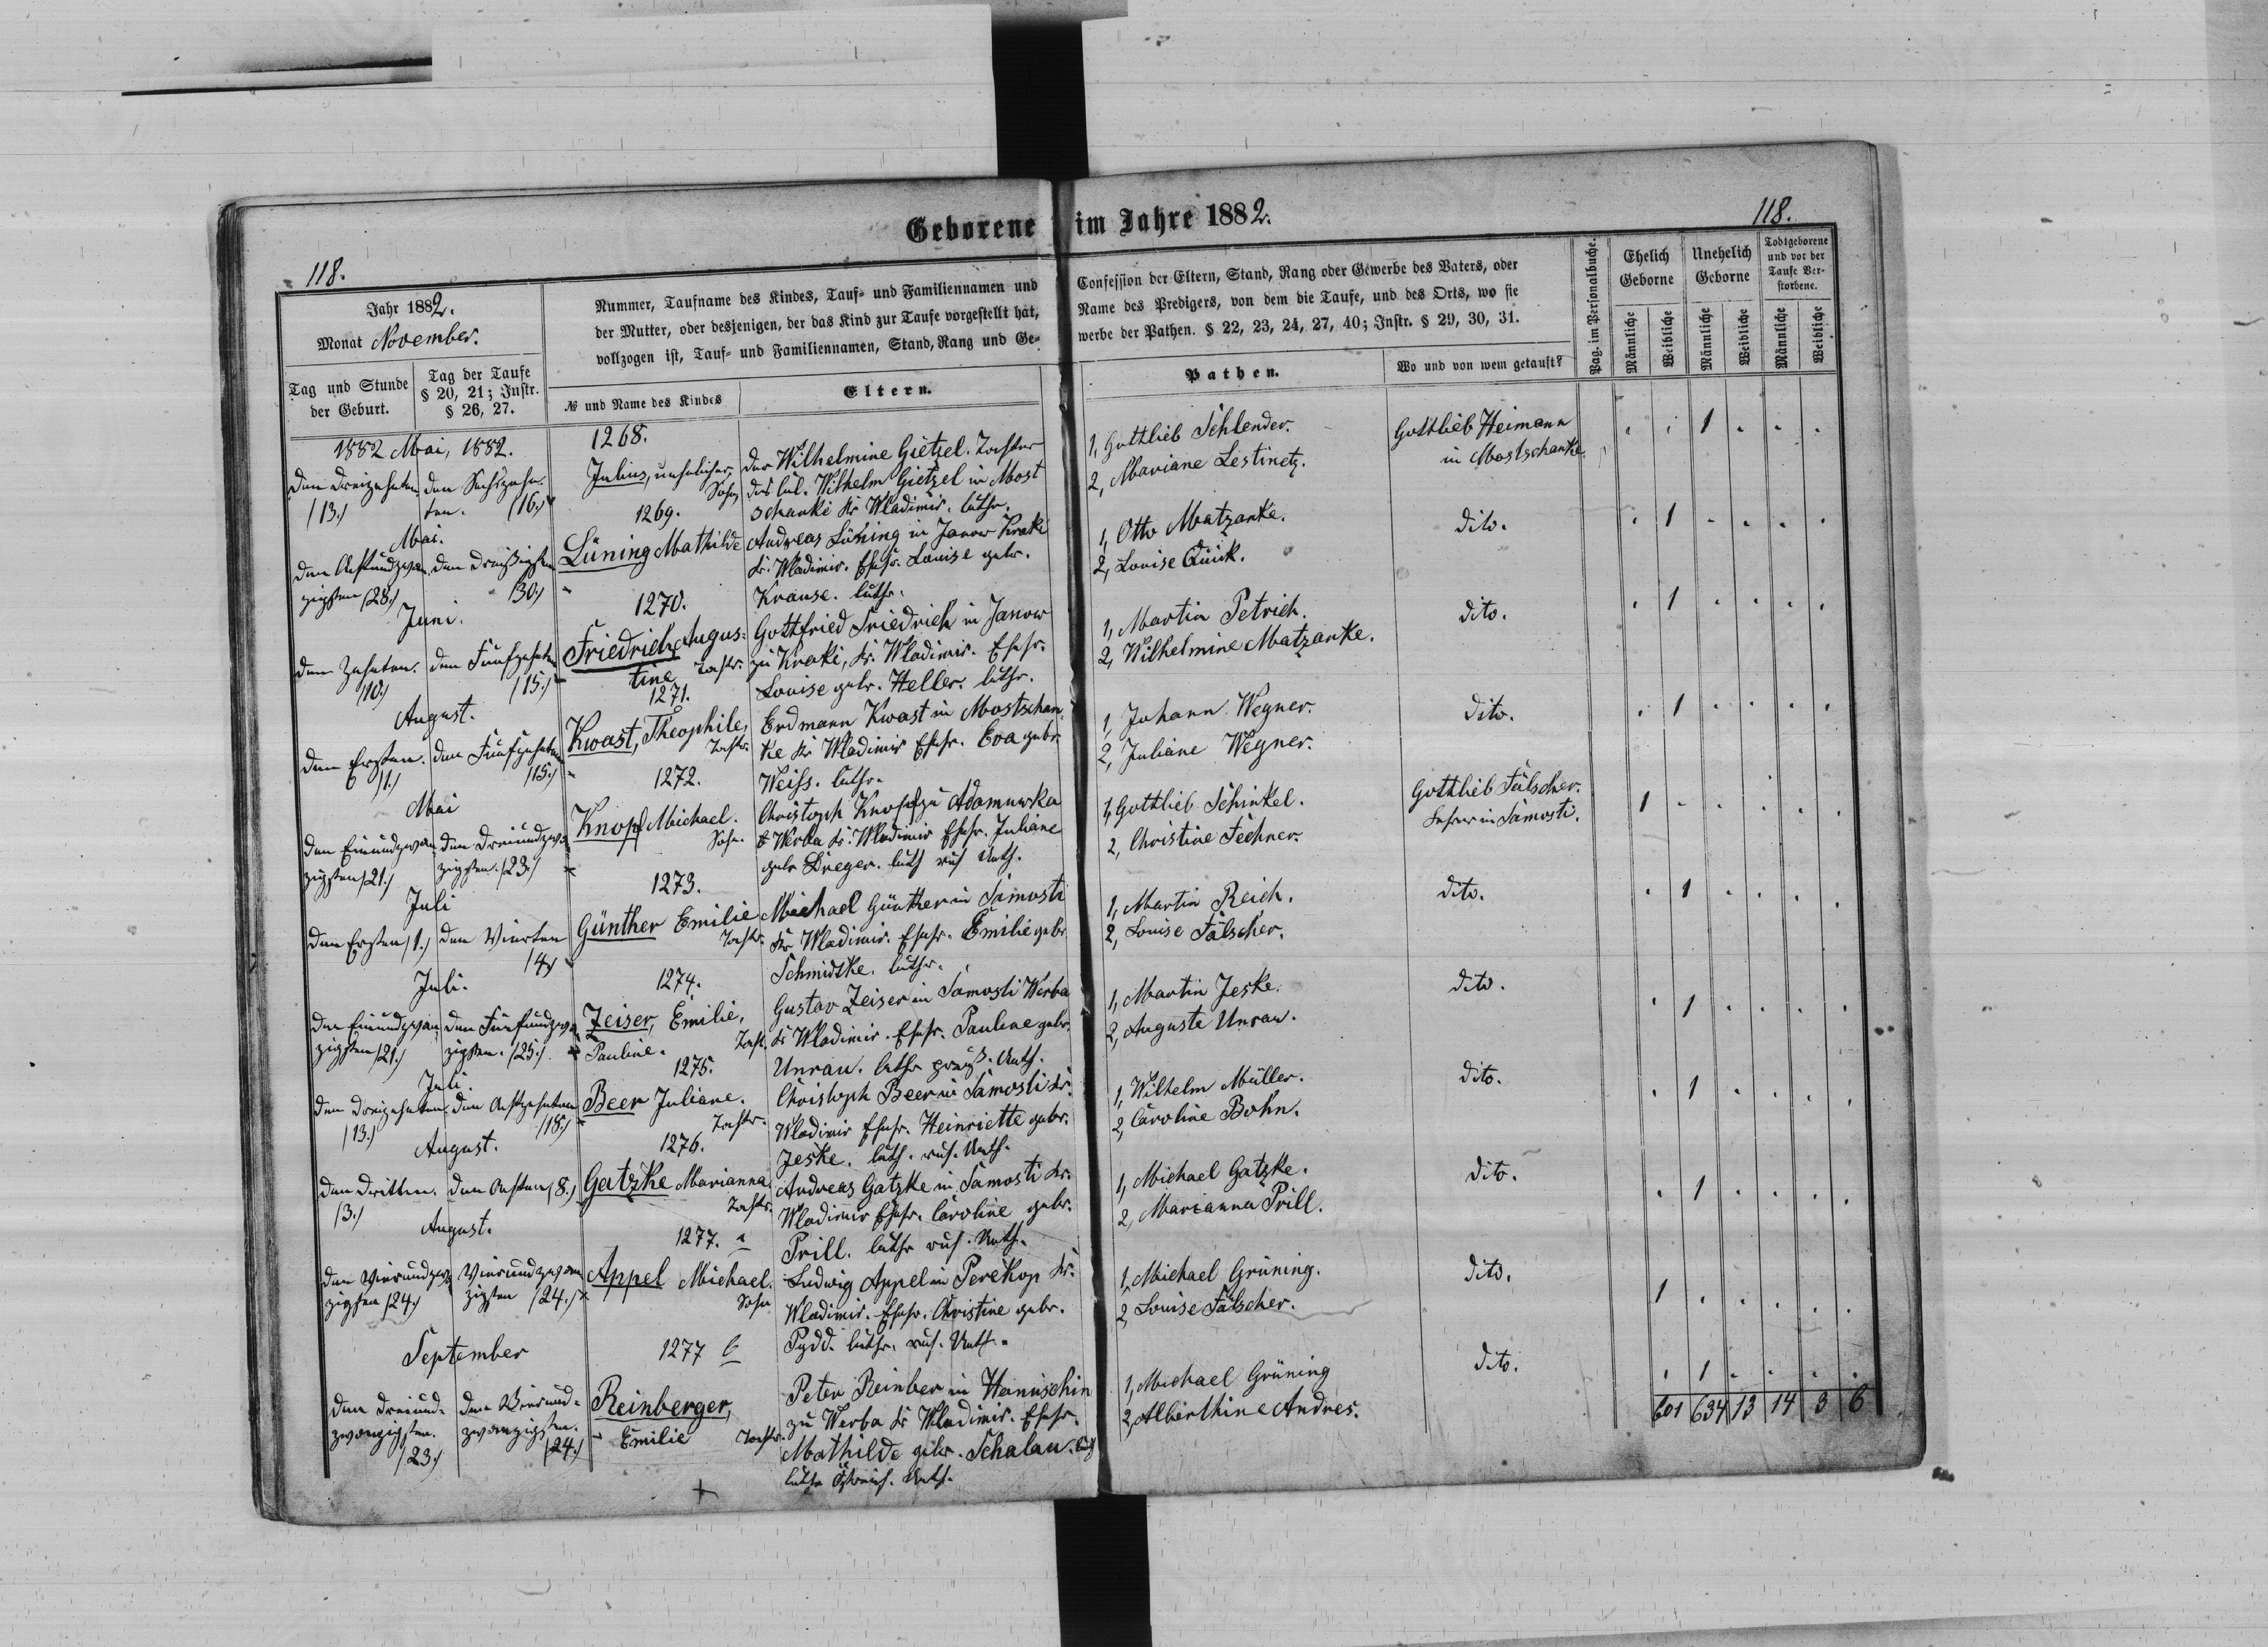 Geborene im Jahre 1882.
118.
118.
Jahr 1882.
Monat November.
Tag und Stunde
der Geburt.
Tag der Taufe
§ 20, 21; Instr.
§ 26, 27.
Nummer, Taufname des Kindes, Tauf- und Familiennamen und
der Mutter, oder desjenigen, der das Kind zur Taufe vorgestellt hat,
vollzogen ist, Tauf- und Familiennamen, Stand, Rang und Ge-
№ und Name des Kindes
Eltern.
Confession der Eltern, Stand, Rang oder Gewerbe des Vaters, oder
Name des Predigers, von dem die Taufe, und des Orts, wo sie
werbe der Pathen. § 22, 23, 24, 27, 40; Instr. § 29, 30, 31.
Pathen.
Wo und von wem getauft?
Pag. im Personalbuche.
Ehelich
Geborne
Unehelich
Geborne
Todtgeborene
und vor der
Taufe Ver-
storbene.
Männliche
Weibliche
Männliche
Weibliche
Männliche
Weibliche
1882 Mai, 1882.
den Dreizehnten
/13./
den Sechszehn-
ten. /16./
1268.
Julius, unehelicher
Sohn
der Wilhelmine Gietzel. Tochter
des Wilhelm Gietzel in Most
schanke Kr Wladimir. luthr.
1, Gottlieb Schlender.
2, Mariane Lestinetz.
Gottlieb Heimann
in Mostschanke.
1
Mai.
den Achtundzwan
zigsten /28./
den Dreißigsten
/30./
1269.
Lüning Mathilde
Andreas Lüning in Janow Kraki
Kr. Wladimir. Ehefr. Louise gebr.
Krause. luthr.
1, Otto Matzanke.
2, Louise Quick.
dito.
1
Juni.
den Zehnten.
/10./
den Fünfzehnten
/15./
1270.
Friedrich Augus-
tine Tochtr.
Gottfried Friedrich in Janow
zu Kraki, Kr. Wladimir. Ehefr.
Louise gebr. Heller. luthr.
1, Martin Petrich.
2, Wilhelmine Matzanke.
dito.
1
August.
den Ersten.
/1./
den Fünfzehnten
/15./
1271.
Kwast, Theophile,
Tochtr.
Erdmann Kwast in Mostschan
ke Kr Wladimir Ehefr. Eva gebr.
Weiss. luthr.
1, Johann Wegner.
2, Juliane Wegner.
dito.
1
Mai
den Einundzwan
zigsten /21./
den Dreiundzwan
zigsten. /23./
1272.
Knopf Michael.
Sohn.
Christoph Knopf zu Adamuwka
Werba Kr. Wladimir Ehefr. Juliane
gebr Dreger. luth rus Unth.
1, Gottlieb Schinkel.
2, Christine Fechner.
Gottlieb Fälscher.
Lehrer in Samosti.
1
Juli
den Ersten /1./
den Vierten
/4./
1273.
Günther Emilie
Tochtr.
Michael Günther in Samosti
Kr Wladimir. Ehefr. Emilie gebr
Schmidtke. luthr.
1, Martin Reich.
2, Louise Fälscher.
dito.
1
Juli.
den Einundzwan
zigsten /21./
den Fünfundzwan
zigsten. /25./
1274.
Zeiser, Emilie,
Pauline. Tocht.
Gustav Zeiser in Samosti Werba
Kr Wladimir. Ehefr. Pauline gebr.
Unrau. luthr preuß. Unth.
1, Martin Jeske.
2, Auguste Unrau.
dito.
1
Juli.
den Dreizehnten
/13./
den Achtzehnten
/18./
1275.
Beer Juliane.
Tochtr.
Christoph Beer in Samosti Kr.
Wladimir Ehefr. Heinriette gebr.
Jeske. luth. rus. Unth.
1, Wilhelm Müller.
2, Caroline Bohn.
dito.
1
August.
den Dritten.
/3./
den Achten /8./
1276.
Gatzke Marianna
Tochtr.
Andreas Gatzke in Samosti Kr.
Wladimir Ehefr. Caroline gebr.
Prill. luthr rus. Unth.
1, Michael Gatzke.
2, Marianna Prill.
dito.
1
August.
den Vierundzwan
zigsten /24./
Vierundzwan
zigsten /24./
1277. a
Appel Michael.
Sohn
Ludwig Appel in Perekop Kr.
Wladimir. Ehefr. Christine gebr.
Pydd. luthr. rus. Unth.
1, Michael Grüning.
2, Louise Fälscher.
dito.
1
September
den Dreiund-
zwanzigsten.
/23./
den Vierund-
zwanzigsten.
/24./
1277 b
Reinberger,
Emilie Tochtr.
Peter Reinber in Hanuschin
zu Werba Kr Wladimir. Ehefr.
Mathilde gebr. Schalau.
luthr Östreich. Unth.
1, Michael Grüning
2, Alberthine Andres.
dito.
1
601 634 13 14 3 6